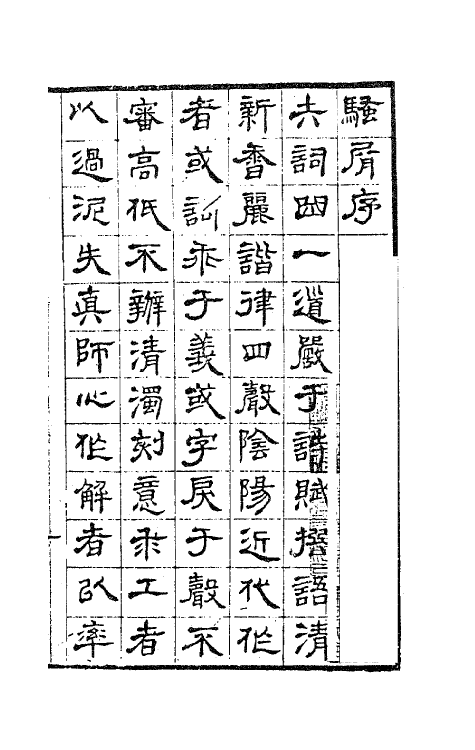 騷屑序
夫詞曲一道嚴于詩賦措語清
新香麗諧律四聲陰陽近代作
者或訓乖于義或字戾于聲不
審高低不辨清濁刻意求工者
以過泥失真師心作解者以率